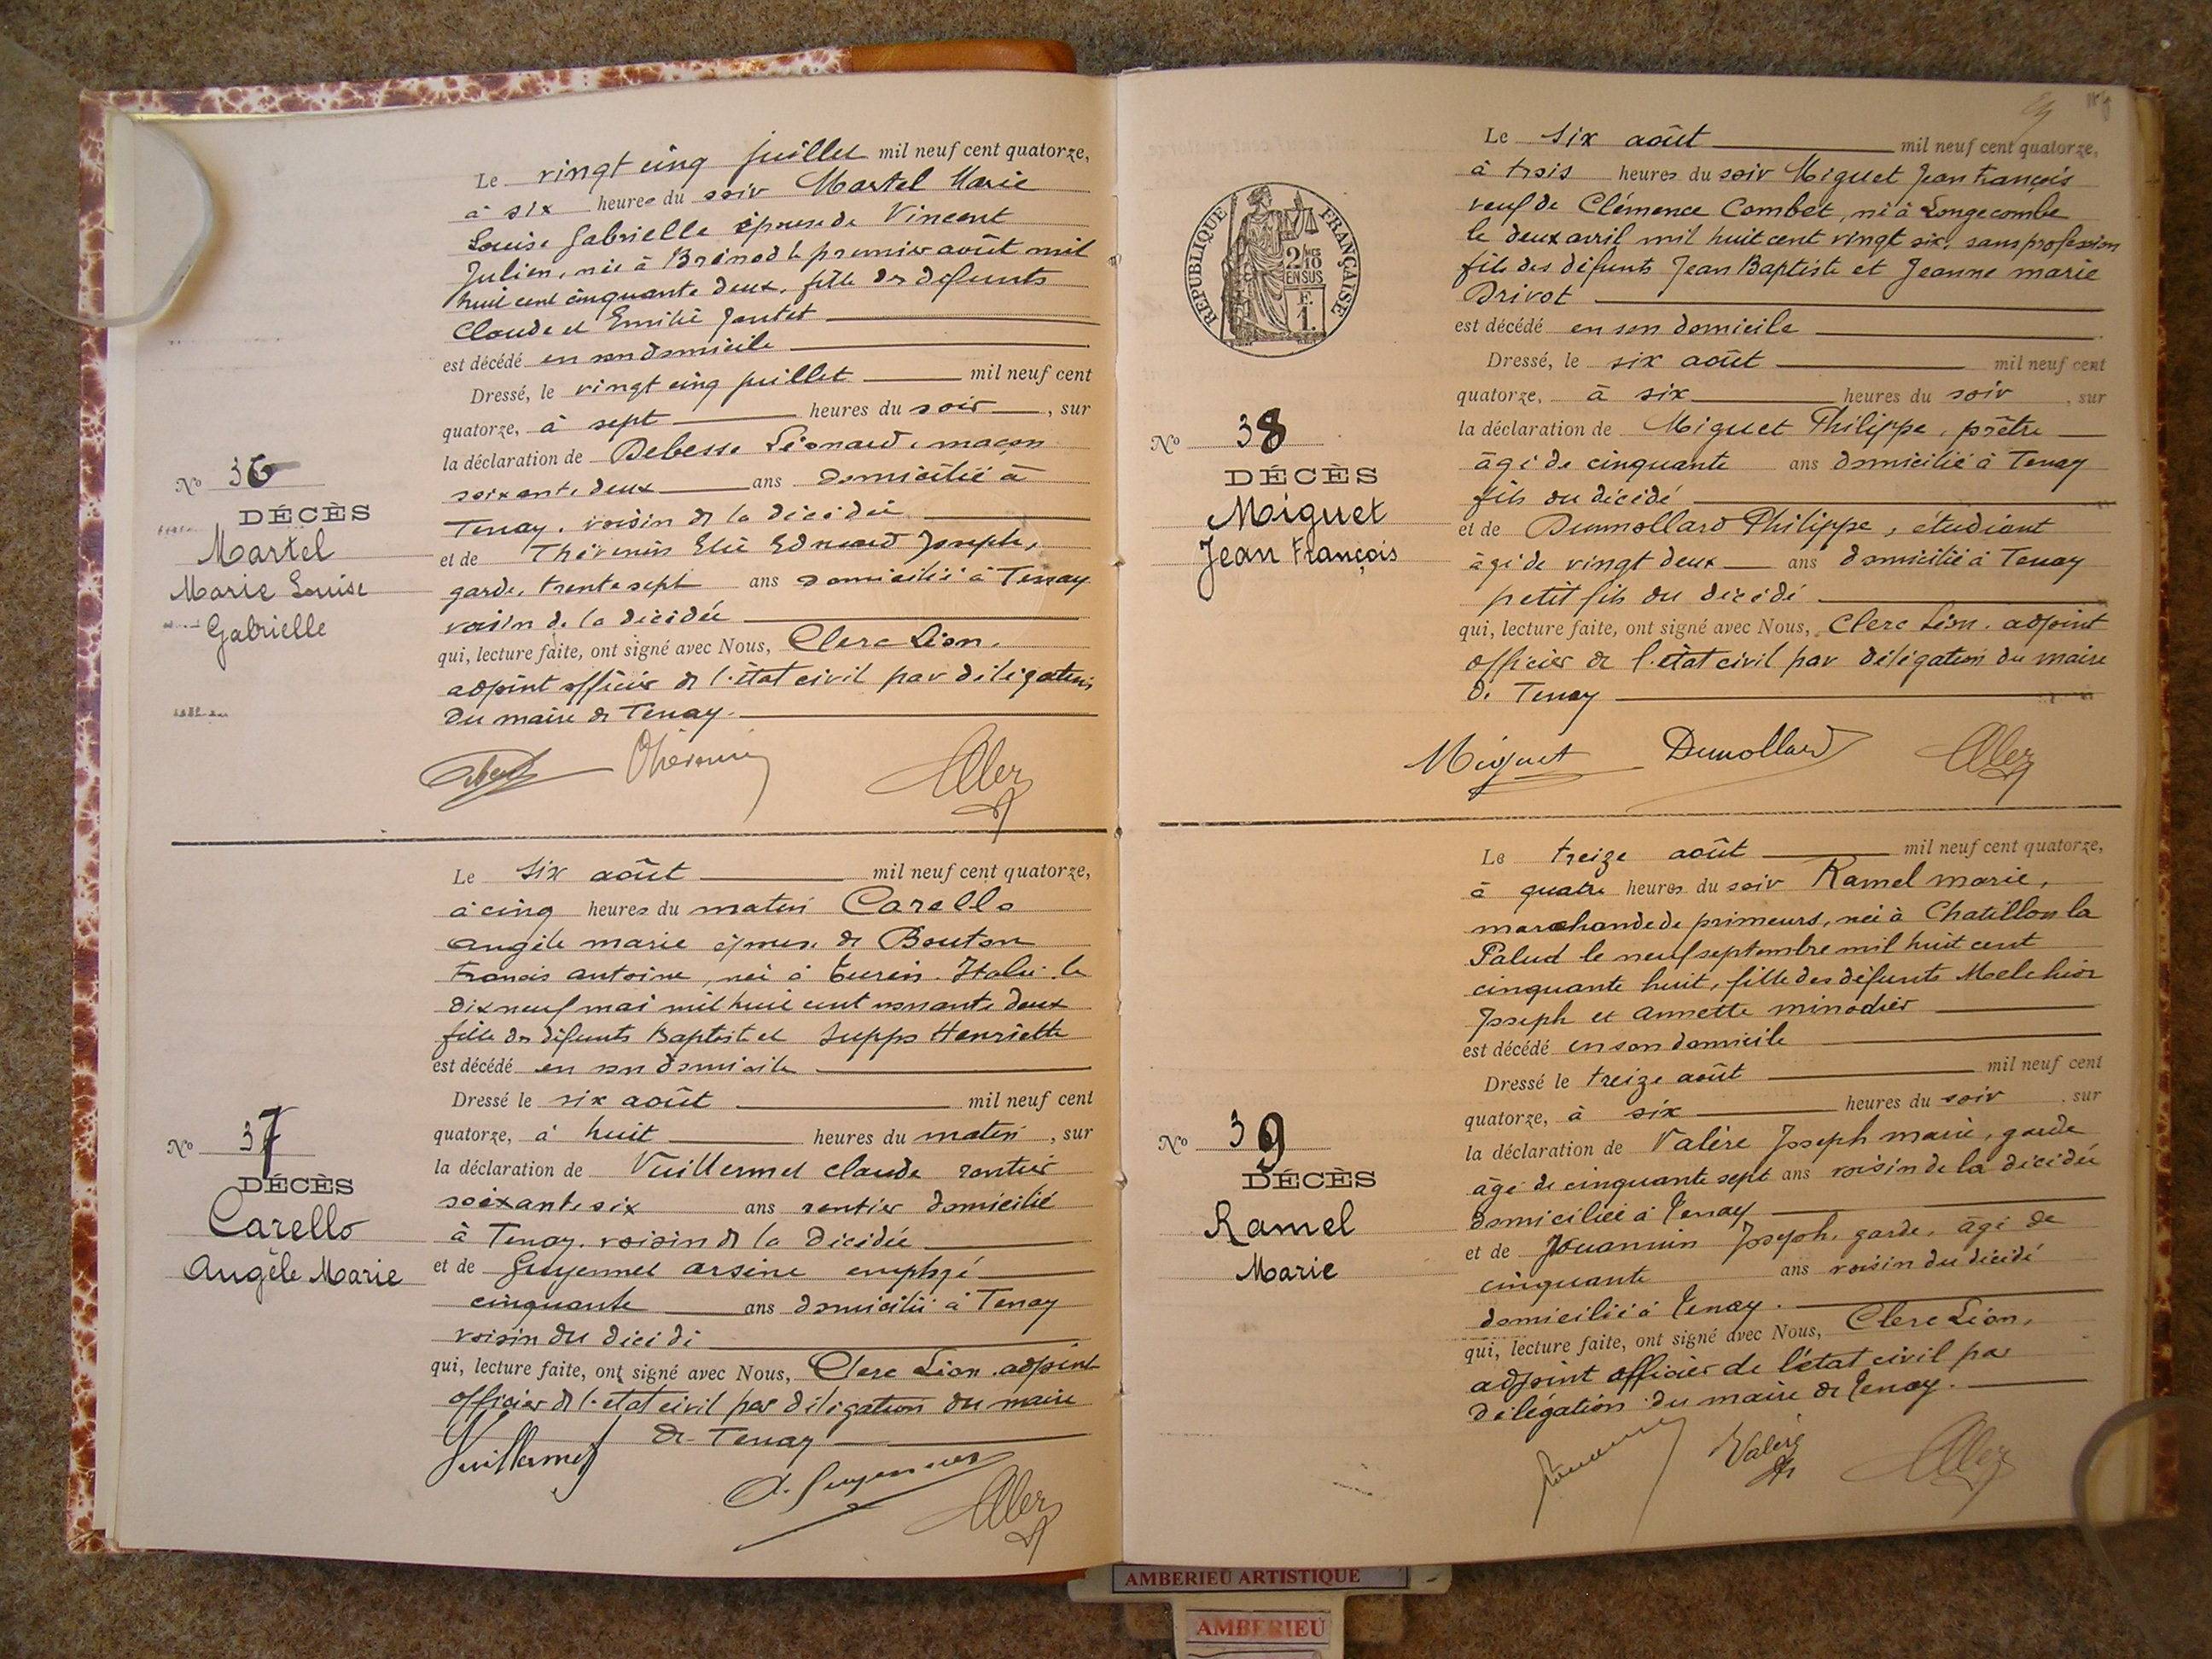 Le vingt cinq juillet mil neuf cent quatorze,
à six heures du soir Martel Marie
Louise Gabrielle épouse de Vincent
Julien, née à Brénod le premier août mil
huit cent cinquante deux, fille des défunts
Claude et Emilie Jantet
est décédé en son domicile
Dressé, le vingt cinq juillet mil neuf cent
quatorze, à sept heures du soir, sur
la déclaration de Debesse Léonard, maçon
soixante deux ans domicilié à
Tenay, voisin de la décédée
et de Thévenin Elie Edouard Joseph,
garde, trente sept ans domicilié à Tenay
voisin de la décidée
qui, lecture faite, ont signé avec Nous, Clerc Léon,
adjoint officier de l'état civil par délégation
du maire de Tenay.
Nº 36
DÉCÈS
Martel
Marie Louise
Gabrielle
Le six août mil neuf cent quatorze,
à cinq heures du matin Carello
Angèle marie épouse de Bouton
Francis antoine, née à Turin. Italie le
dix neuf mai mil huit cent nonante deux
fille des défunts Baptiste et Suppo Henriette
est décédé en son domicile
Dressé le six août mil neuf cent
quatorze, à huit heures du matin, sur
la déclaration de Vuillermet claude rentier
soixante six ans rentier domicilié
à Tenay, voisin de la décidée
et de Guyennet arsène employé
cinquante ans domicilié à Tenay
voisin du décidé
qui, lecture faite, ont signé avec Nous, Clerc Léon. adjoint
officier de l'état civil par délégation du maire
de Tenay
Vuillermet
Nº 37
DÉCÈS
Carello
Angèle Marie
Le six août mil neuf cent quatorze,
à trois heures du soir Miguet Jean François
veuf de Clémence Combet, né à Longecombe
le deux avril mil huit cent vingt six, sans profession
fils des défunts Jean Baptiste et Jeanne marie
Drivot
est décédé en son domicile
Dressé, le six août mil neuf cent
quatorze, à six heures du soir, sur
la déclaration de Miguet Philippe, prêtre
âgé de cinquante ans domicilié à Tenay
fils du décidé
et de Dumollard Philippe, étudiant
âgé de vingt deux ans domicilié à Tenay
petit fils du décédé
qui, lecture faite, ont signé avec Nous, Clerc Léon. adjoint
officier de l'état civil par délégation du maire
de Tenay
Miguet Dumollard
RÉPUBLIQUE FRANÇAISE
2/10 EN SUS
F. 1.
Nº 38
DÉCÈS
Miguet
Jean François
Le treize août mil neuf cent quatorze,
à quatre heures du soir Ramel marie,
marchande de primeurs, née à Chatillon la
Palud le neuf septembre mil huit cent
cinquante huit, fille des défunts Melchior
Joseph et Annette minodier
est décédé en son domicile
Dressé le treize août mil neuf cent
quatorze, à six heures du soir, sur
la déclaration de Valère Joseph marie, garde
âgé de cinquante sept ans voisin de la décidée
domiciliée à Tenay
et de Jouannin Joseph, garde, âgé de
cinquante ans voisin du décidé
domicilié à Tenay.
qui, lecture faite, ont signé avec Nous, Clerc Léon,
adjoint officier de l'état civil par
délégation du maire de Tenay.
Valère
Nº 39
DÉCÈS
Ramel
Marie
AMBERIEU ARTISTIQUE
AMBERIEU